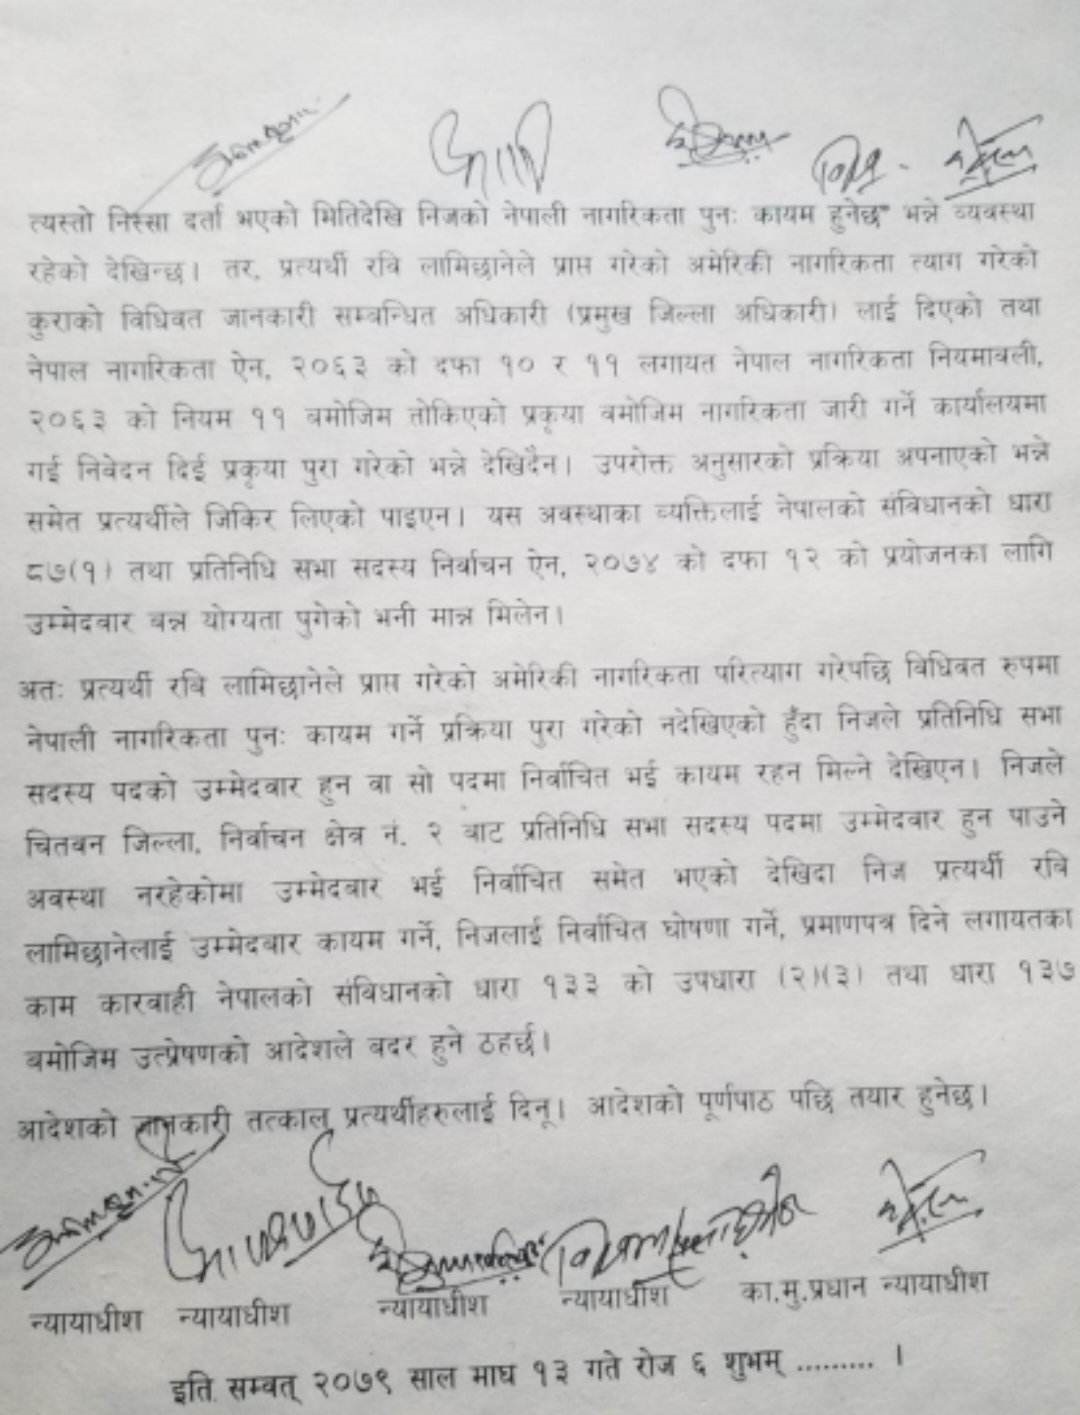 त्यस्तो निस्सा दर्ता भएको मितिदेखि निजको नेपाली नागरिकता पुनः कायम हुनेछ" भन्ने व्यवस्था
रहेको देखिन्छ। तर, प्रत्यर्थी रवि लामिछानेले प्राप्त गरेको अमेरिकी नागरिकता त्याग गरेको
कुराको विधिवत जानकारी सम्बन्धित अधिकारी (प्रमुख जिल्ला अधिकारी) लाई दिएको तथा
नेपाल नागरिकता ऐन, २०६३ को दफा १० र ११ लगायत नेपाल नागरिकता नियमावली,
२०६३ को नियम ११ बमोजिम तोकिएको प्रकृया बमोजिम नागरिकता जारी गर्ने कार्यालयमा
गई निवेदन दिई प्रकृया पुरा गरेको भन्ने देखिदैन। उपरोक्त अनुसारको प्रक्रिया अपनाएको भन्ने
समेत प्रत्यर्थीले जिकिर लिएको पाइएन। यस अवस्थाका व्यक्तिलाई नेपालको संविधानको धारा
८७(१) तथा प्रतिनिधि सभा सदस्य निर्वाचन ऐन, २०७४ को दफा १२ को प्रयोजनका लागि
उम्मेदवार बन्न योग्यता पुगेको भनी मान्न मिलेन।
अतः प्रत्यर्थी रवि लामिछानेले प्राप्त गरेको अमेरिकी नागरिकता परित्याग गरेपछि विधिवत रुपमा
नेपाली नागरिकता पुनः कायम गर्ने प्रक्रिया पुरा गरेको नदेखिएको हुँदा निजले प्रतिनिधि सभा
सदस्य पदको उम्मेदवार हुन वा सो पदमा निर्वाचित भई कायम रहन मिल्ने देखिएन। निजले
चितवन जिल्ला, निर्वाचन क्षेत्र नं. २ बाट प्रतिनिधि सभा सदस्य पदमा उम्मेदवार हुन पाउने
अवस्था नरहेकोमा उम्मेदवार भई निर्वाचित समेत भएको देखिदा निज प्रत्यर्थी रवि
लामिछानेलाई उम्मेदवार कायम गर्ने, निजलाई निर्वाचित घोषणा गर्ने, प्रमाणपत्र दिने लगायतका
काम कारवाही नेपालको संविधानको धारा १३३ को उपधारा (२)(३) तथा धारा १३७
बमोजिम उत्प्रेषणको आदेशले बदर हुने ठहर्छ।
आदेशको जानकारी तत्काल प्रत्यर्थीहरुलाई दिनू। आदेशको पूर्णपाठ पछि तयार हुनेछ।
न्यायाधीश न्यायाधीश न्यायाधीश न्यायाधीश का.मु.प्रधान न्यायाधीश
इति सम्वत् २०७९ साल माघ १३ गते रोज ६ शुभम् ......... ।